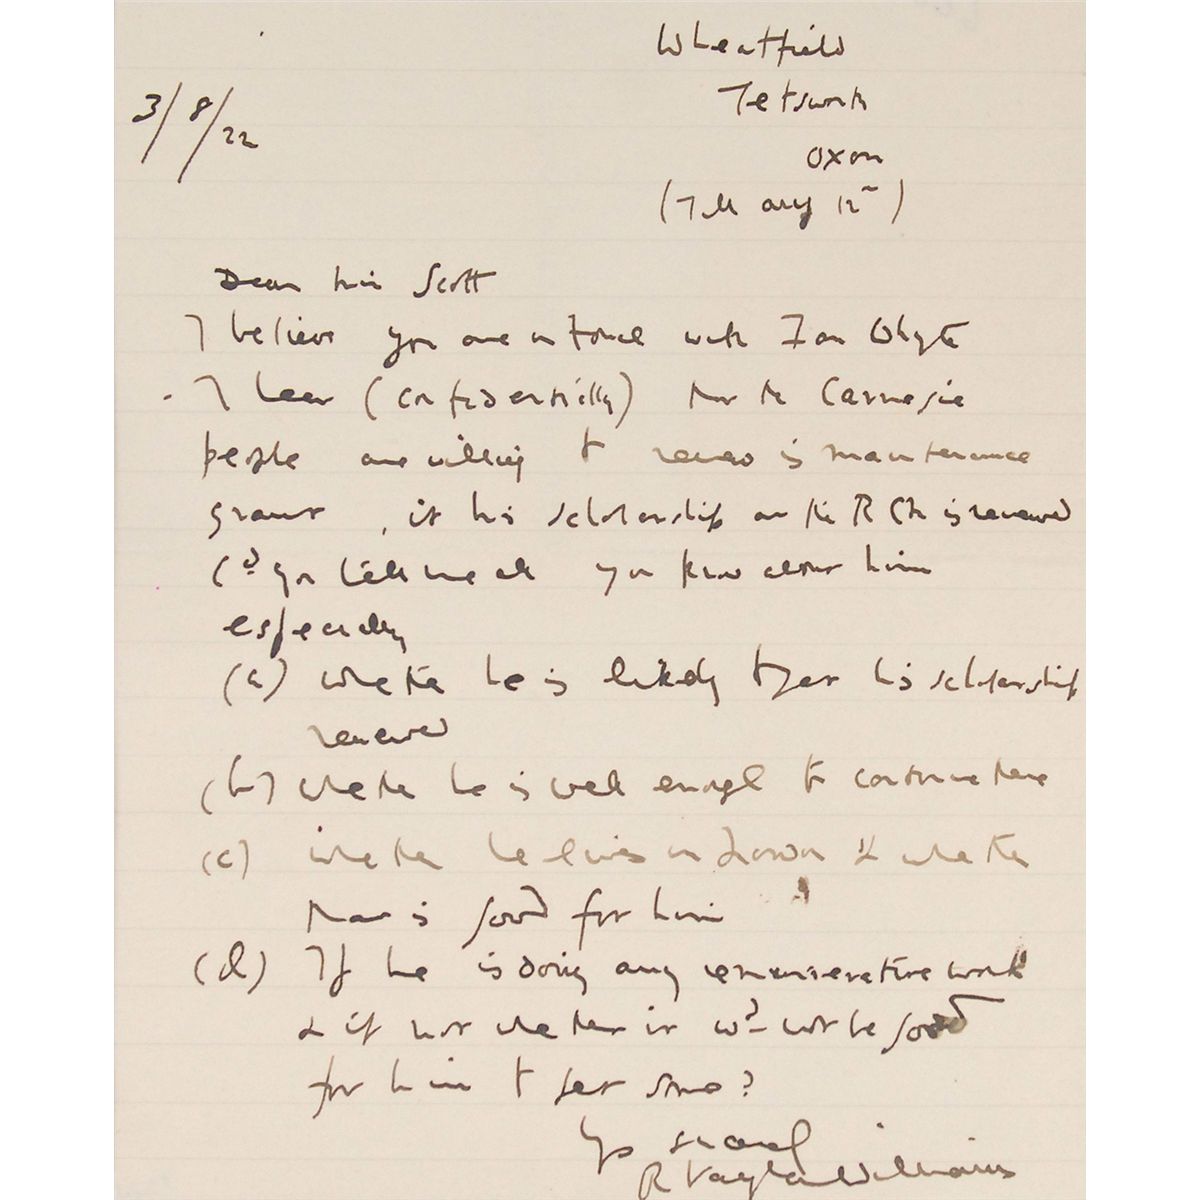 Wheatfield
Tetsworth
Oxon
(Till Aug 12th)
3/8/22
Dear Miss Scott
I believe you are in touch with Ian Whyte
I hear (confidentially) that the Carnegie
people are willing to renew is maintenance
grant, if his scholarship at the RCM is renewed
Cd you tell me all you know about him
especially
(a) whether he is likely to get his scholarship
renewed
(b) whether he is well enough to continue there
(c) whether he lives in London & whether
that is good for him
(d) If he is doing any remunerative work
& if not whether it wd not be good
for him to get some?
Yrs sincerely
R Vaughan Williams